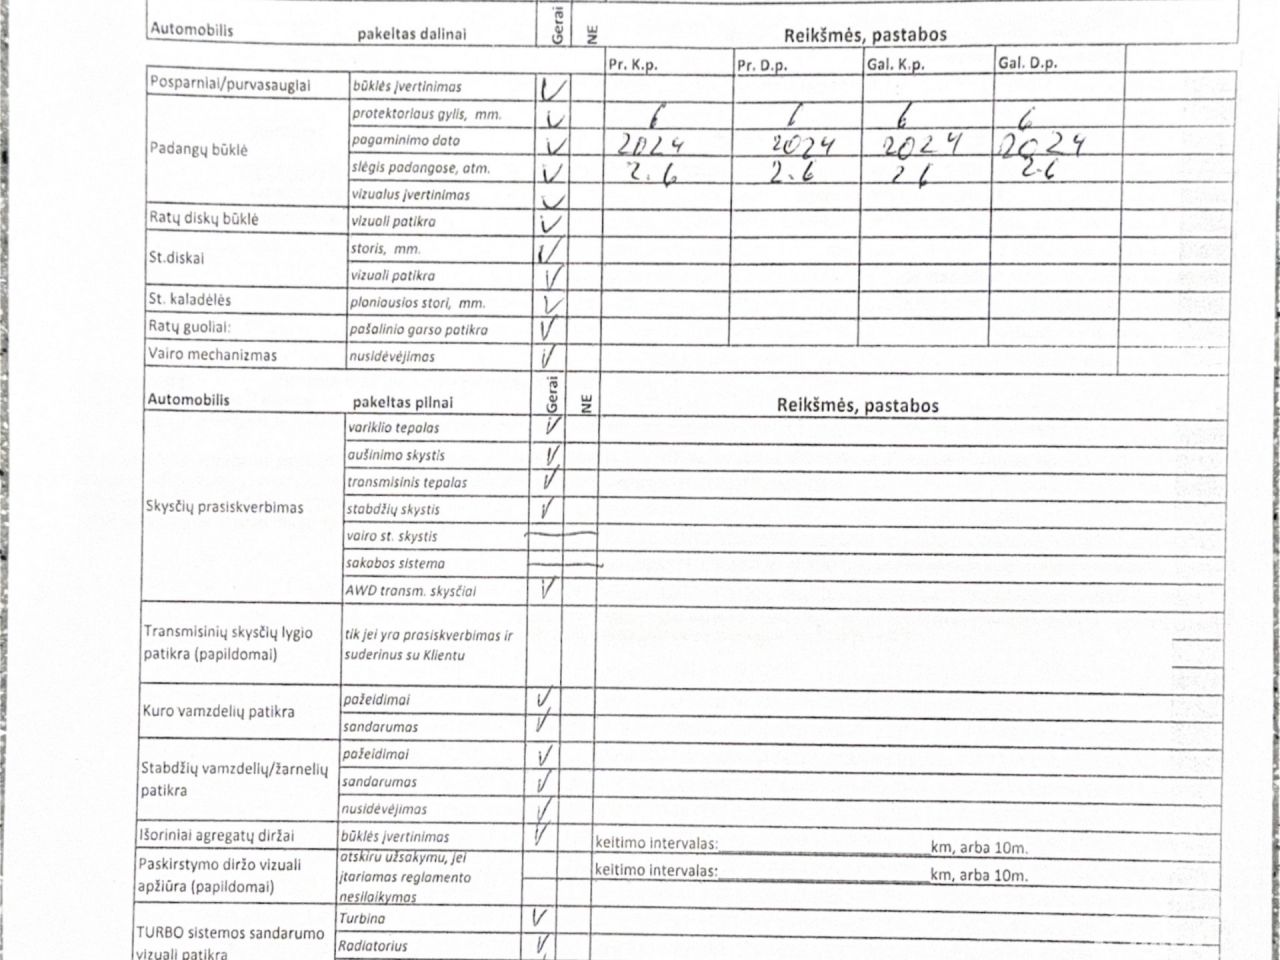 Automobilis pakeltas dalinai Gerai NE Reikšmės, pastabos
Pr. K.p. Pr. D.p. Gal. K.p. Gal. D.p.
Posparniai/purvasaugiai būklės įvertinimas
Padangų būklė
protektoriaus gylis, mm. 6 6 6 6
pagaminimo data 2024 2024 2024 2024
slėgis padangose, atm. 2.6 2.6 2 6 2.6
vizualus įvertinimas
Ratų diskų būklė vizuali patikra
St.diskai
storis, mm.
vizuali patikra
St. kaladėlės ploniausios stori, mm.
Ratų guoliai: pašalinio garso patikra
Vairo mechanizmas nusidėvėjimas
Automobilis pakeltas pilnai Gerai NE Reikšmės, pastabos
Skysčių prasiskverbimas
variklio tepalas
aušinimo skystis
transmisinis tepalas
stabdžių skystis
vairo st. skystis
sakabos sistema
AWD transm. skysčiai
Transmisinių skysčių lygio
patikra (papildomai)
tik jei yra prasiskverbimas ir
suderinus su Klientu
Kuro vamzdelių patikra
pažeidimai
sandarumas
Stabdžių vamzdelių/žarnelių
patikra
pažeidimai
sandarumas
nusidėvėjimas
Išoriniai agregatų diržai būklės įvertinimas keitimo intervalas: km, arba 10m.
Paskirstymo diržo vizuali
apžiūra (papildomai)
atskiru užsakymu, jei
įtariamas reglamento
nesilaikymas
keitimo intervalas: km, arba 10m.
TURBO sistemos sandarumo
vizuali patikra
Turbina
Radiatorius